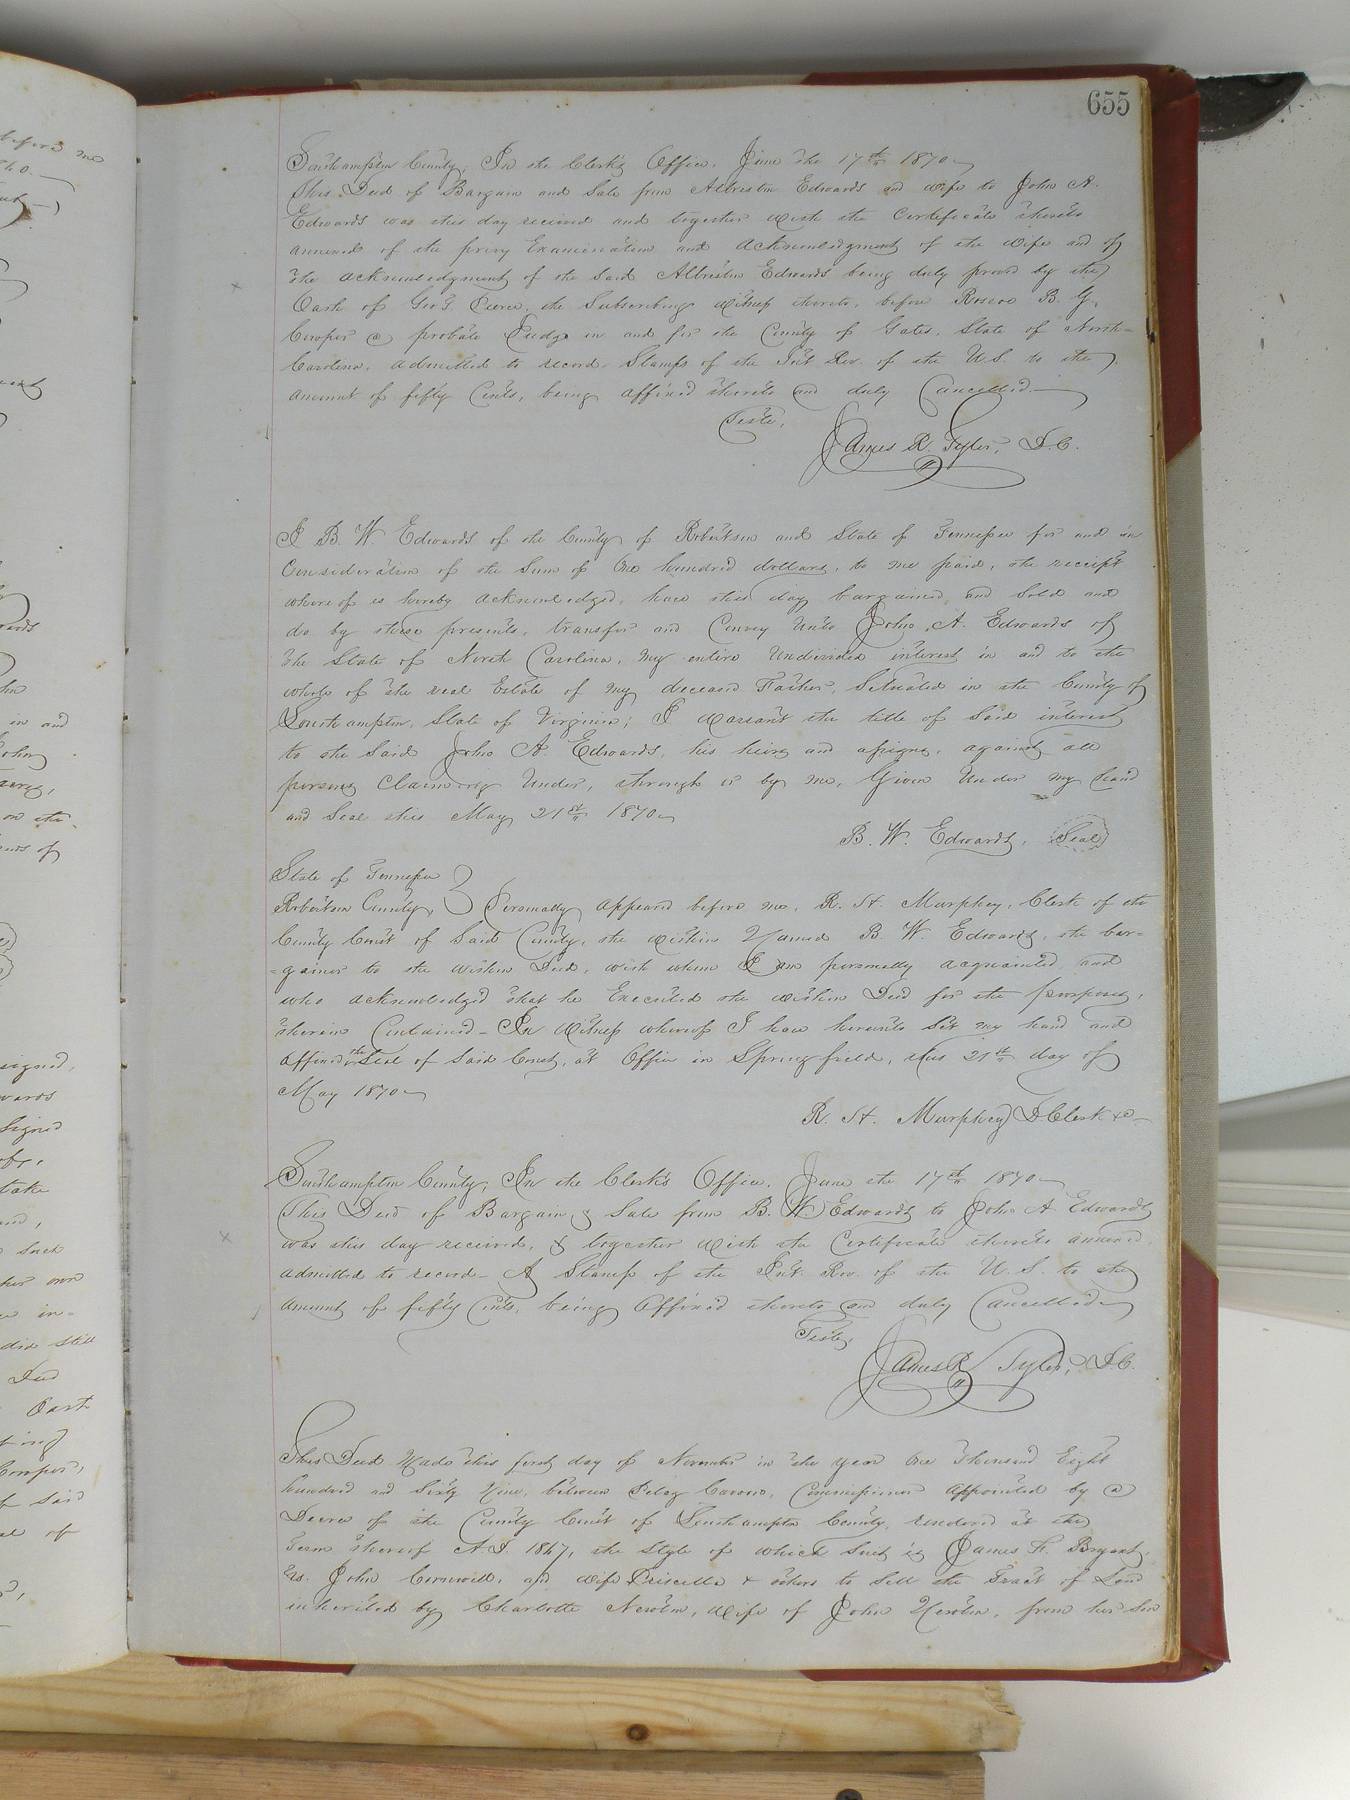 655
Southampton County, In the Clerk's Office, June the 17th 1870
This Deed of Bargain and Sale from Albriston Edwards and wife to John A.
Edwards was this day received and together with the Certificate thereto
annexed of the privy Examination and acknowledgment of the wife and of
the acknowledgment of the said Albriston Edwards being duly proved by the
Oath of Geo. T. Pierce, the Subscribing witness thereto, before Roscoe B. G.
Cowper a probate Judge in and for the County of Gates, State of North-
Carolina, admitted to record. Stamps of the Int Rev. of the U.S. to the
amount of fifty Cents, being affixed thereto and duly Cancelled.
Teste,
James R. Tyler, D.C.
I B. W. Edwards of the County of Robertson and State of Tennessee for and in
Consideration of the Sum of One hundred dollars, to me paid, the receipt
whereof is hereby acknowledged, have this day bargained, and Sold and
do by these presents, transfer and Convey Unto John A. Edwards of
the State of North Carolina, my entire Undivided interest in and to the
whole of the real Estate of my deceased Father, Situated in the County of
Southampton, State of Virginia; I warrant the title of Said interest
to the Said John A. Edwards, his heirs and assigns, against all
persons Claiming Under, through or by me, Given Under my hand
and Seal this May 21st 1870
B. W. Edwards, Seal
State of Tennessee
Robertson County, } Personally appeared before me, R. H. Murphey, Clerk of the
County Court of Said County, the within Named B. W. Edwards, the bar-
=gainer to the within Deed, with whom I am personally acquainted and
who acknowledged that he Executed the within Deed for the purposes,
therein Contained - In Witness whereof I have hereunto Set my hand and
affixed the Seal of Said Court, at Office in Springfield, this 21st day of
May 1870
R. H. Murphey D Clerk &c
Southampton County, In the Clerk's Office, June the 17th 1870
This Deed of Bargain & Sale from B. W. Edwards to John A Edwards
was this day received, & together with the Certificate thereto annexed,
admitted to record - A Stamp of the Int. Rev. of the U. S. to the
amount of fifty Cents, being affixed thereto and duly Cancelled
Teste,
James R Tyler, D.C.
This Deed Made this first day of November in the year One Thousand Eight
hundred and Sixty Nine, between Commissioner appointed by a
Decree of the County Court of Southampton County, rendered at the
Term thereof A.D. 1847, the Style of which Suit is James F. Bryant,
vs. John Cornwell, and wife Priscilla & others to Sell the Tract of Land
inherited by Charlotte Newton, wife of John Newton, from her Son